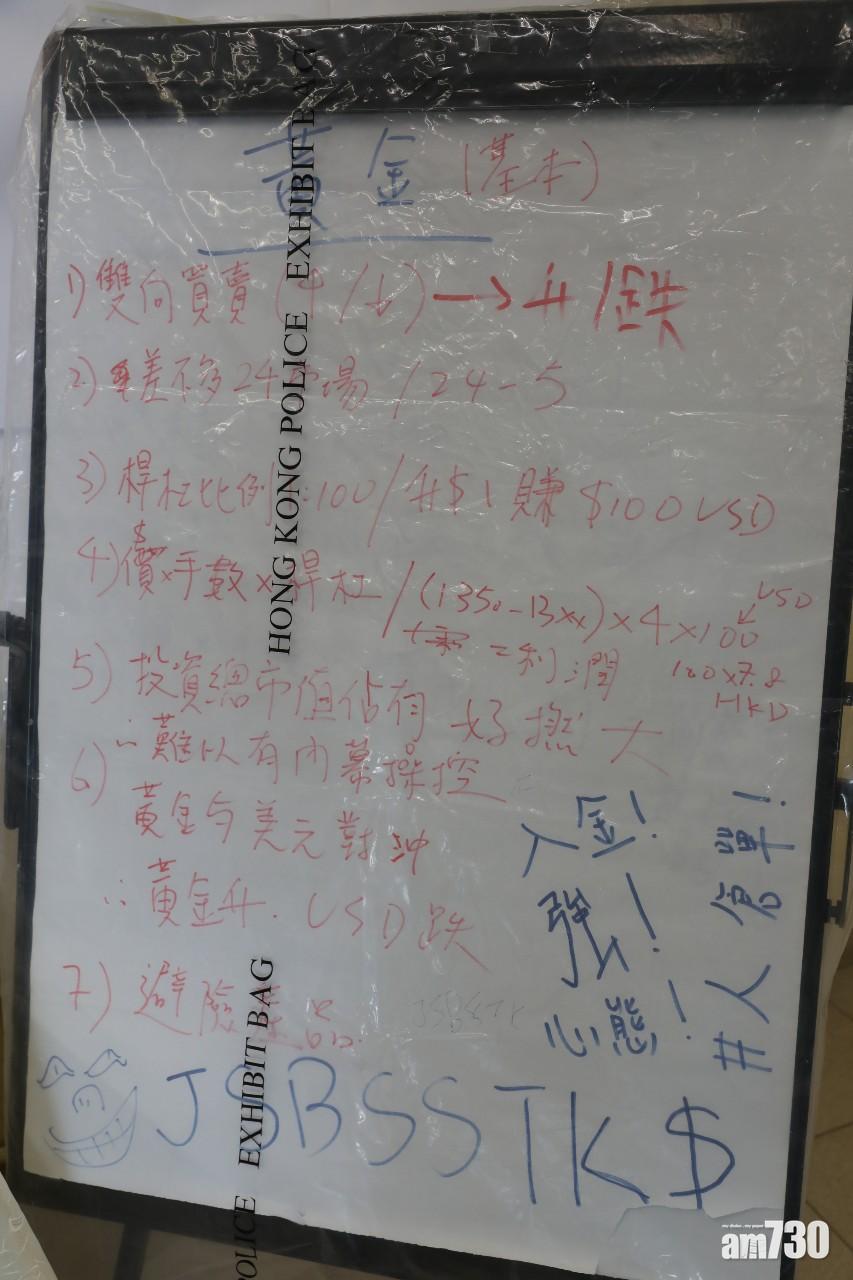 黃金 (基本)
1) 雙向買賣 (↑/↓) → 升/跌
2) 差不多24市場 / 24-5
3) 桿杠比例 1:100 / 升$1 賺 $100 USD
4) 價×手數×桿杠 / (1350-13xx)×4×100
USD
=利潤
100×7.8
HKD
5) 投資總市值佔有 好撚大
∴難以有內幕操控
6) 黃金与美元對沖
∴黃金升. USD跌
7) 避險產品
入金!
強!
心態!
#人名單!
JSBSSTK$
HONG KONG POLICE EXHIBIT BAG
POLICE EXHIBIT BAG
am730